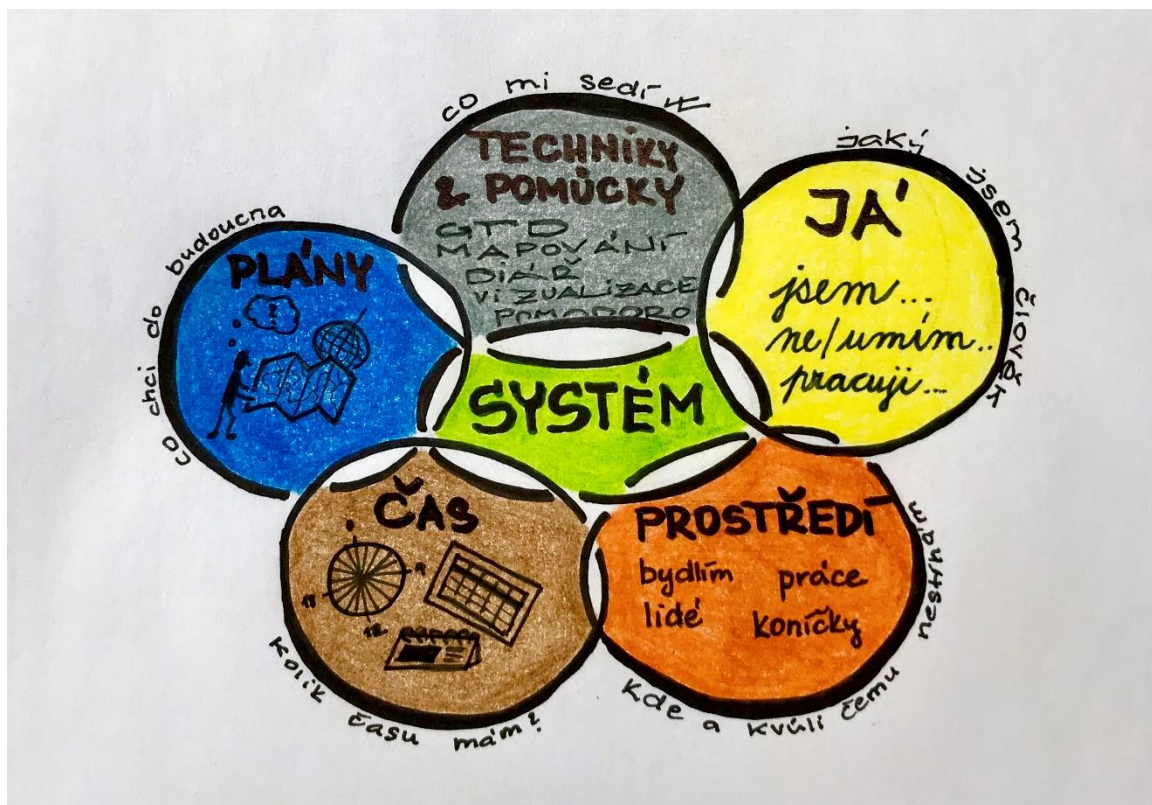 co mi sedí
TECHNIKY
& POMŮCKY
GTD
MAPOVÁNÍ
DIÁŘ
VIZUALIZACE
POMODORO
jaký jsem člověk
JÁ
jsem...
ne/umím..
pracuji...
co chci do budoucna
PLÁNY
SYSTÉM
ČAS
9
12
kolik času mám?
PROSTŘEDÍ
bydlím práce
lidé koníčky
kde a kvůli čemu nestíhám